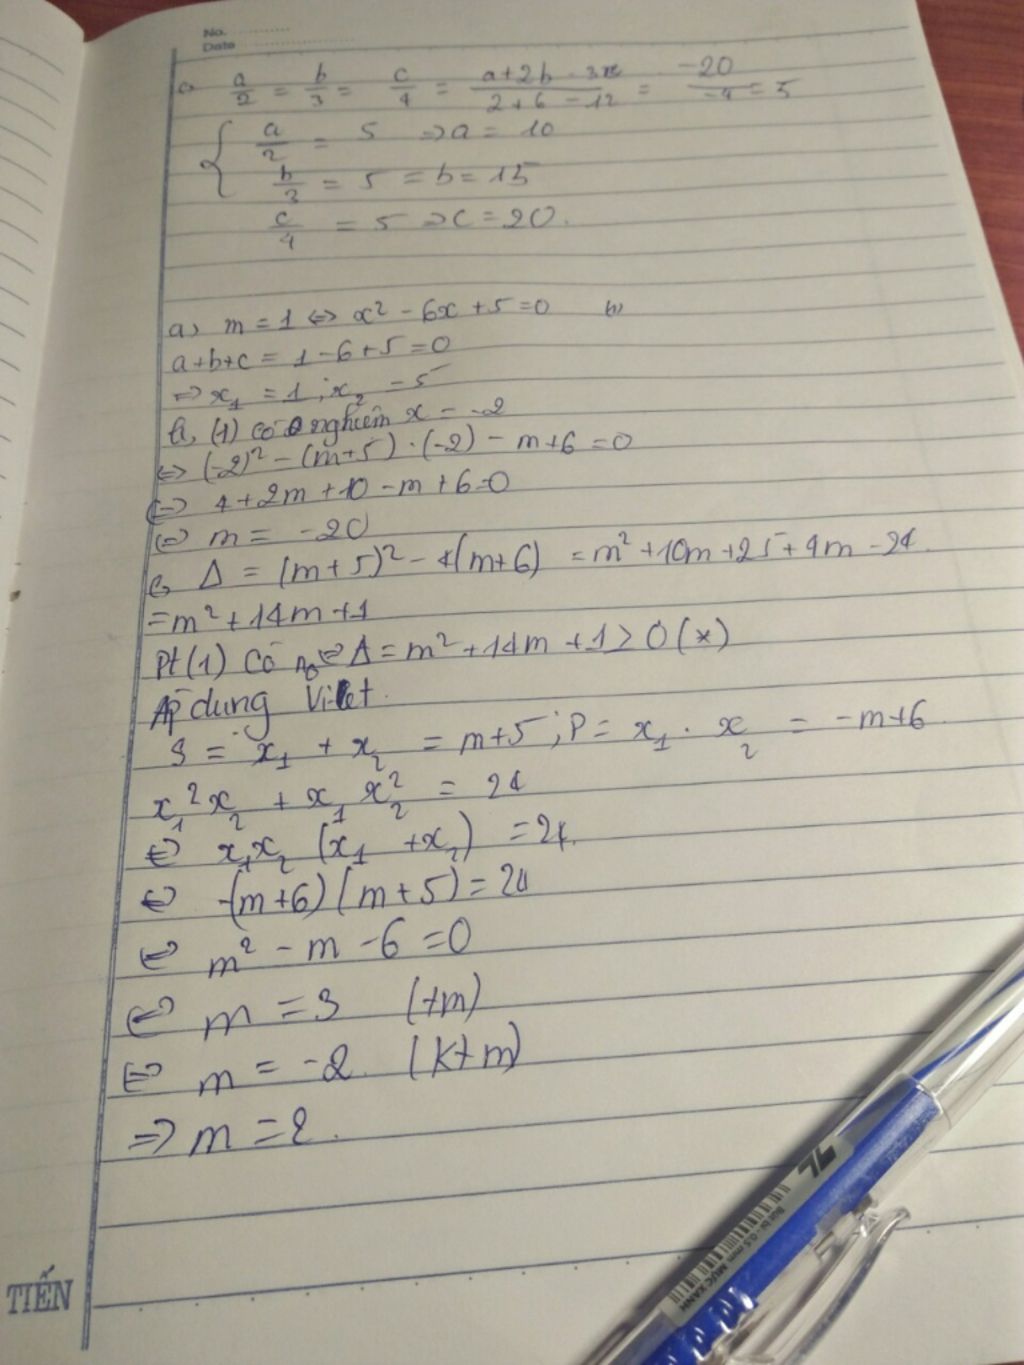 No.
Date
c, a/2 = b/3 = c/4 = a+2b-3c / 2+6-12 = -20/-4 = 5
{ a/2 = 5 => a = 10
b/3 = 5 = b = 15
c/4 = 5 => c = 20.
a, m = 1 <=> x² - 6x + 5 = 0 (1)
a+b+c = 1-6+5 = 0
=> x₁ = 1 ; x₂ = 5
b, (1) có nghiệm x = -2
<=> (-2)² - (m+5) · (-2) - m + 6 = 0
<=> 4 + 2m + 10 - m + 6 = 0
<=> m = -20
c, Δ = (m+5)² - 4(m+6) = m² + 10m + 25 + 4m - 24.
= m² + 14m + 1
Pt (1) Có n₀ <=> Δ = m² + 14m + 1 ≥ 0 (*)
Áp dụng Vi-et.
S = x₁ + x₂ = m+5 ; P = x₁ . x₂ = -m+6
x₁²x₂ + x₁x₂² = 24
<=> x₁x₂ (x₁ + x₂) = 24.
<=> -(m+6)(m+5) = 24
<=> m² - m - 6 = 0
<=> m = 3 (tm)
<=> m = -2. (ktm)
=> m = 2.
TIẾN
TL
Bút bi - 0.5 mm MỰC XANH